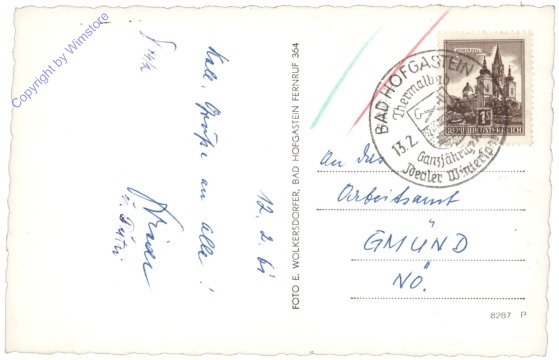 Copyright by Wimstore
Kall. Grüße an alle!
12. 2. 61
FOTO E. WOLKERSDORFER, BAD HOFGASTEIN FERNRUF 364
BAD HOFGASTEIN
Thermalbad
13.2.
Ganzjährig
Idealer Wintersport
REPUBLIK ÖSTERREICH
An das
Arbeitsamt
GMÜND
NÖ.
8287 P